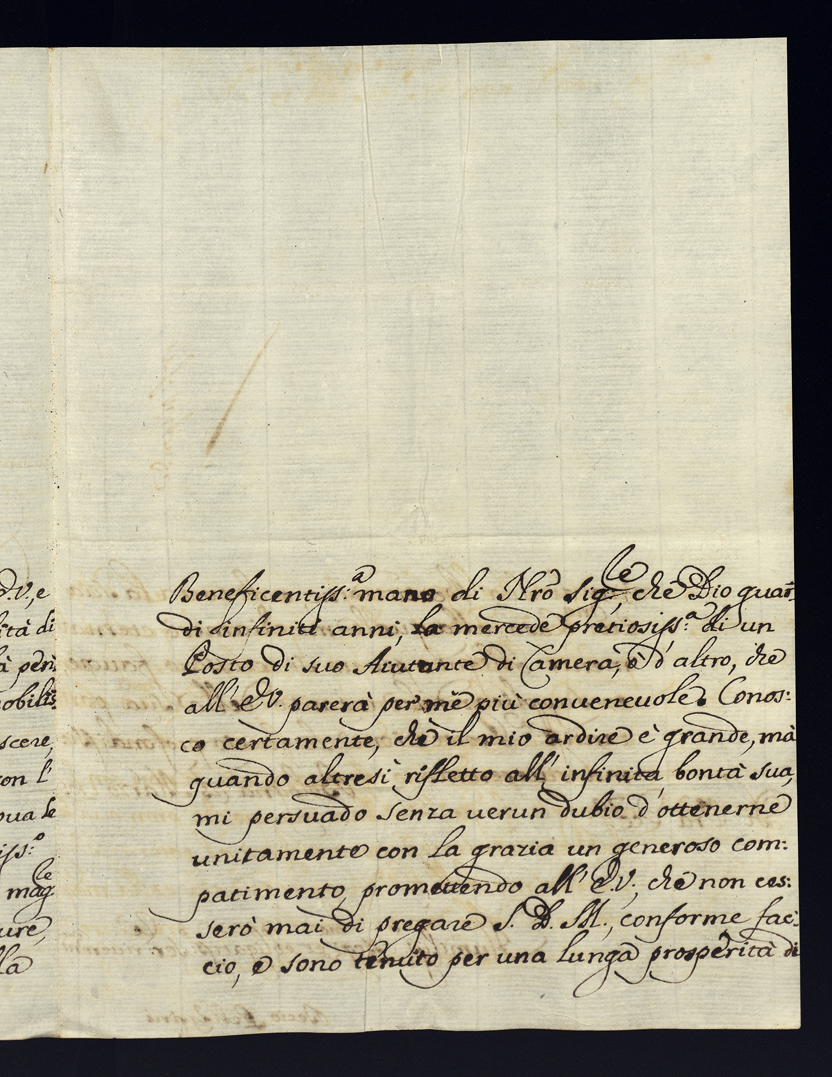 D.V., e
ità di
à peri
nobilis:
scere,
con l'
ova le
iss:º
mag.le
ure,
lla
Beneficentiss:ª mano di Nrõ Sig.le, che Dio guar:
di infiniti anni, la mercede pretiosiss:ª di un
Posto di suo Aiutante di Camera, ò d'altro, che
all' E.V. parerà per mè più convenevole. Conos:
co certamente, che il mio ardire è grande, mà
quando altresì rifletto all' infinita bontà sua,
mi persuado senza verun dubio d'ottenerne
unitamente con la grazia un generoso com:
patimento, promettendo all' E.V., che non ces:
serò mai di pregare S. D. M., conforme fac:
cio, e sono tenuto per una lunga prosperità di